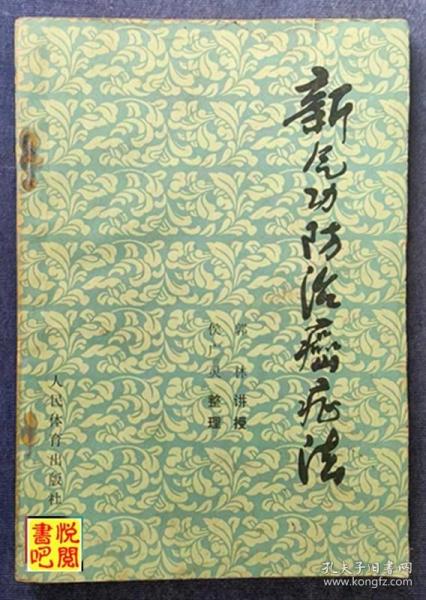 新气功防治癌症法
郭林讲授
侯广灵整理
人民体育出版社
悦阅
書吧
孔夫子旧书网
www.kongfz.com